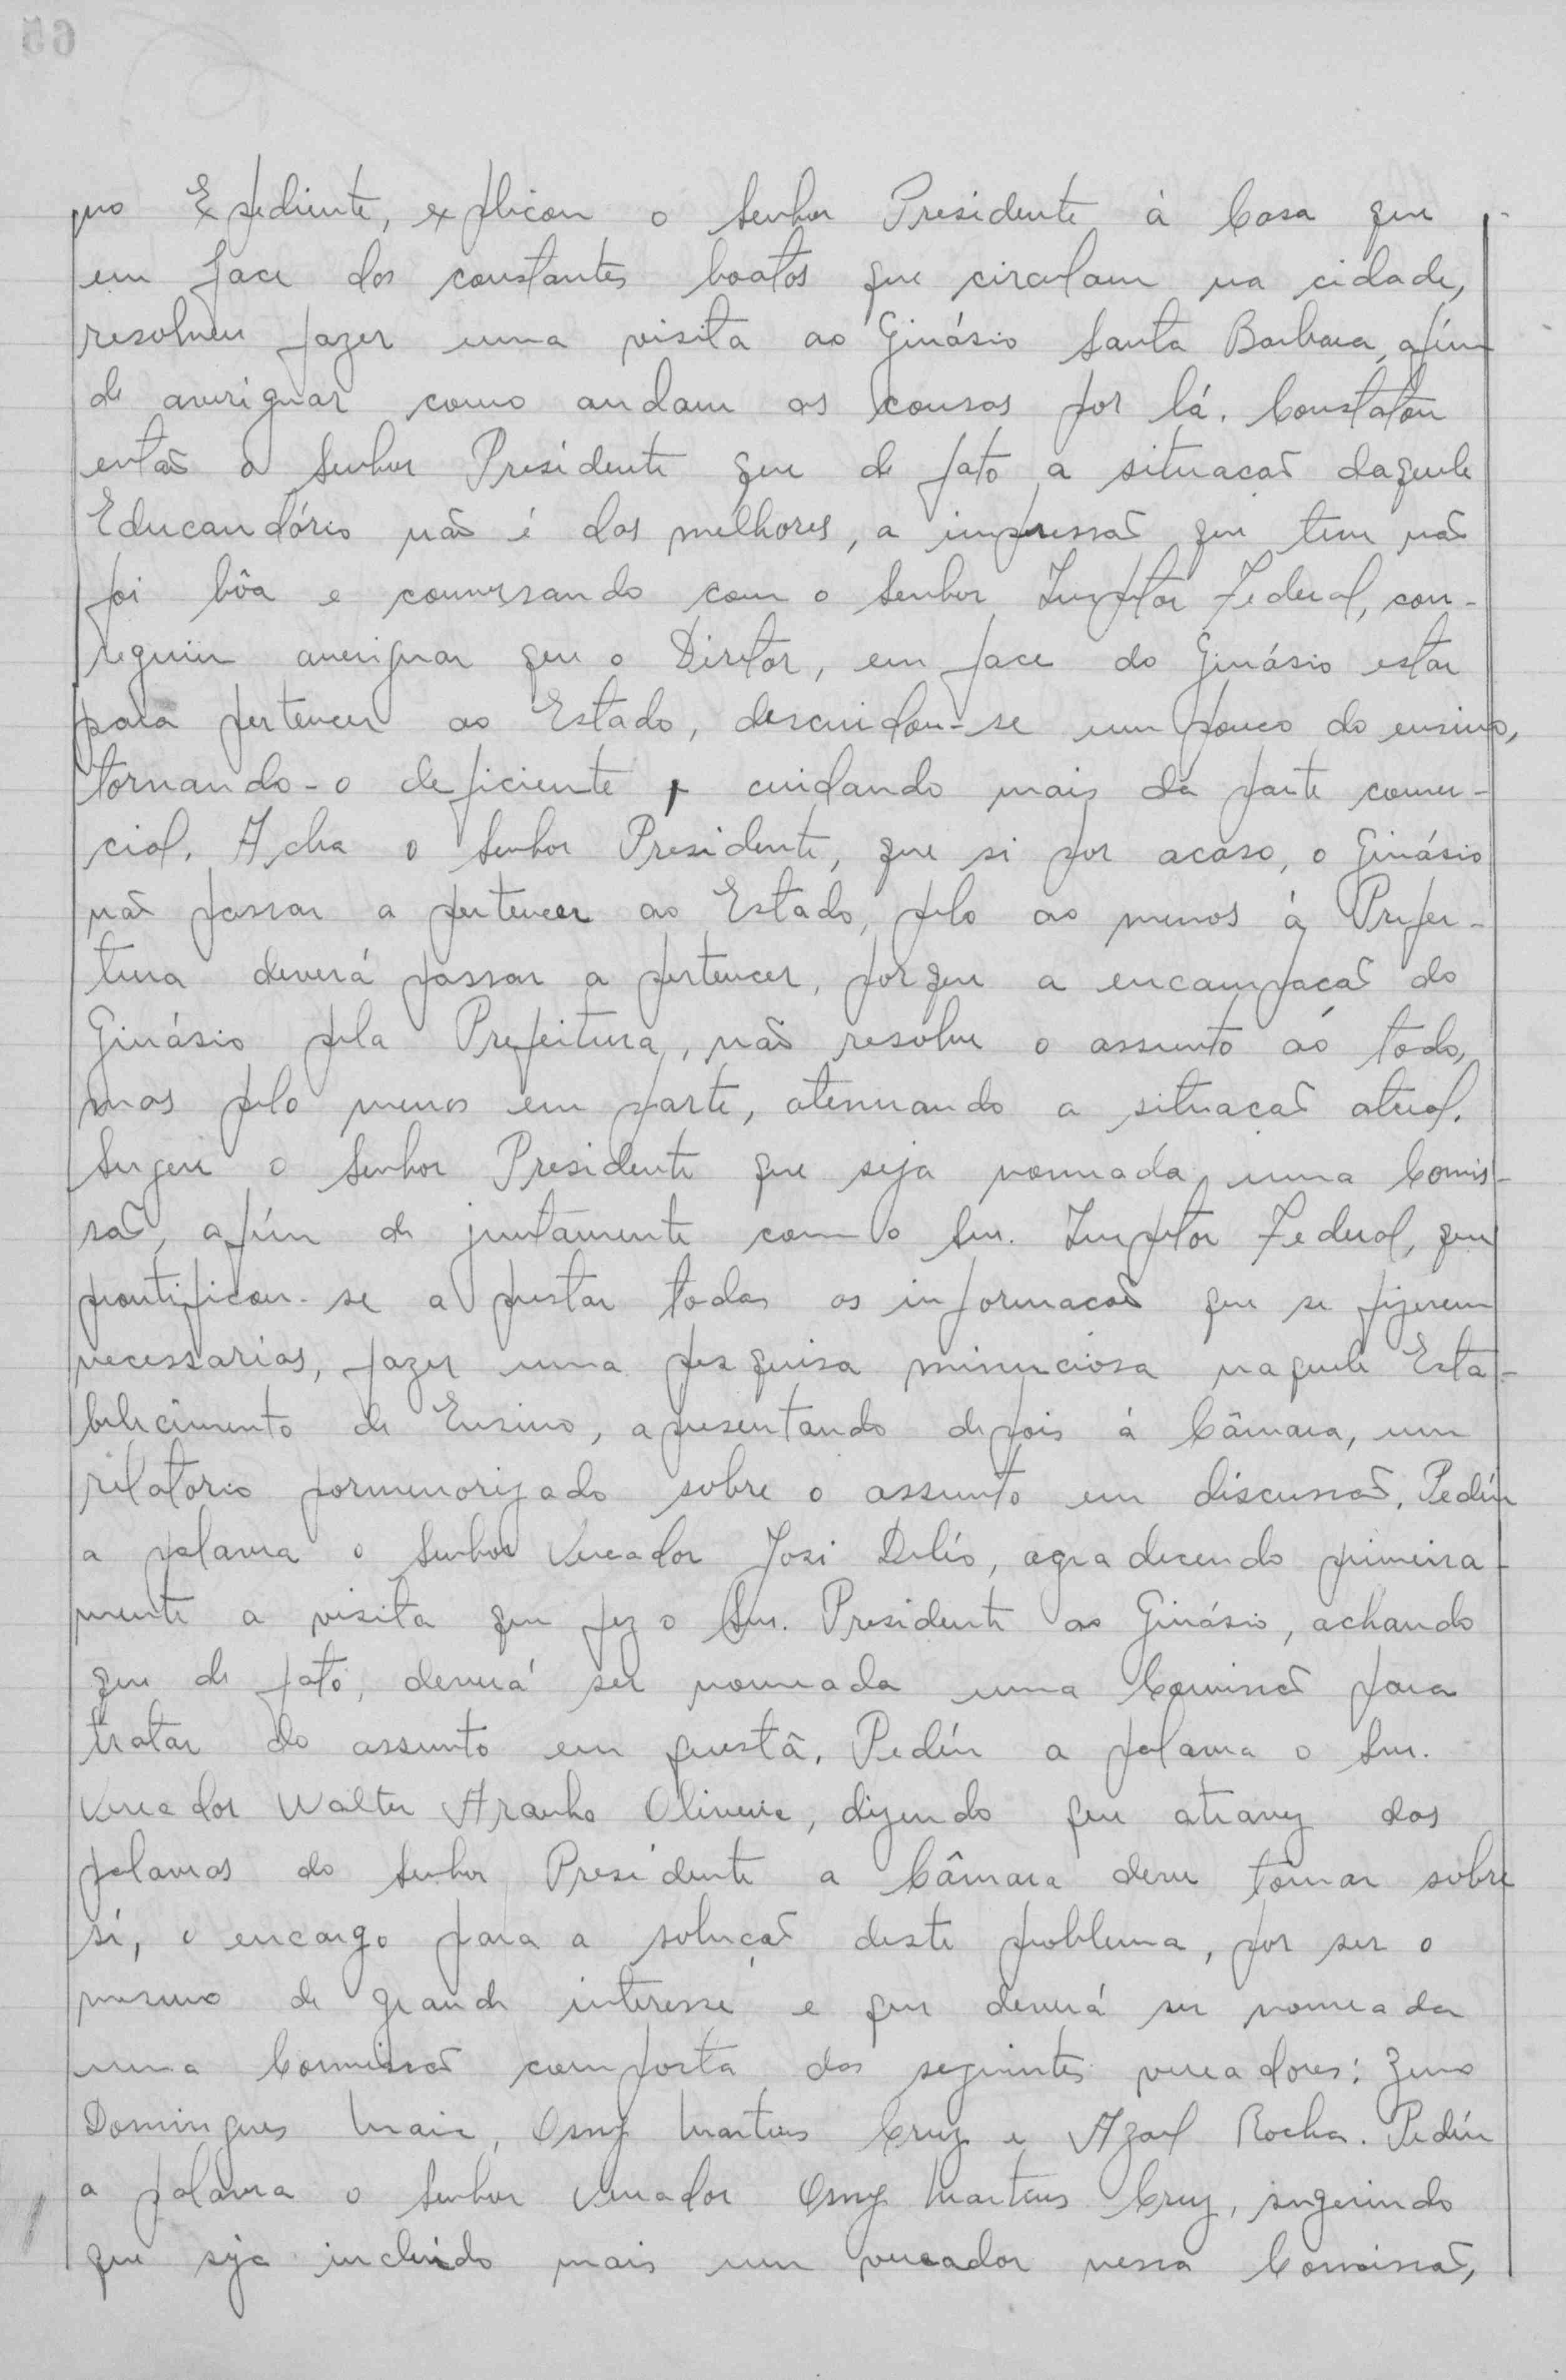 no Expediente, explicou o Senhor Presidente à Casa que
em face dos constantes boatos que circulam na cidade,
resolveu fazer uma visita ao Ginásio Santa Barbara, afim
de averiguar como andam as cousas por lá. Constatou
então o Senhor Presidente que de fato a situacão daquele
Educandório não é das melhores, a impressão que teve não
foi bôa e conversando com o Senhor Inspetor Federal, con-
seguiu averiguar que o Diretor, em face do Ginásio estar
para pertencer ao Estado, descuidou-se um pouco do ensino,
tornando-o deficiente, cuidando mais da parte comer-
cial. Acha o Senhor Presidente, que si por acaso, o Ginásio
não passar a pertencer ao Estado, pelo ao menos à Prefei-
tura deverá passar a pertencer, porque a encampacão do
Ginásio pela Prefeitura, não resolve o assunto ao todo,
mas pelo menos em parte, atenuando a situacão atual.
Sugere o Senhor Presidente que seja nomeada uma Comis-
são, afim de juntamente com o Snr. Inspetor Federal, que
prontificou-se a prestar todas as informacões que se fizerem
necessarias, fazer uma pesquisa minunciosa naquele Esta-
belecimento de Ensino, apresentando depois á Câmara, um
relatorio pormenorizado sobre o assunto em discussão. Pediu
a palavra o Senhor Vereador José Délio, agradecendo primeira-
mente a visita que fez o Snr. Presidente ao Ginásio, achando
que de fato, deverá ser nomeada uma Comissão para
tratar do assunto em questã. Pediu a palavra o Snr.
Vereador Walter Aranha Oliveira, dizendo que atravez das
palavras do Senhor Presidente a Câmara deve tomar sobre
sí, o encargo para a solução deste problema, por ser o
mesmo de grande interesse e que deverá ser nomeada
uma Comissão composta dos seguintes vereadores: Zeno
Domingues Maia, Osny Martins Cruz e Azael Rocha. Pediu
a palavra o Senhor Vereador Osny Martins Cruz, sugerindo
que seja incluido mais um vereador nessa Comissão,